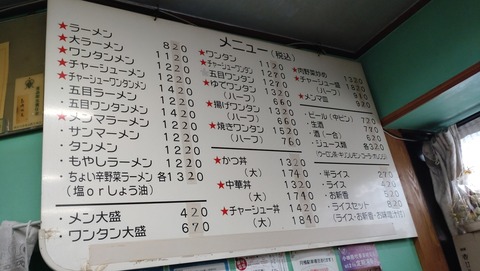 メニュー(税込)
★ラーメン 820
★大ラーメン 1120
★ワンタンメン 1220
★チャーシューメン 1220
★チャーシューワンタンメン
・五目ラーメン 1220
・五目ワンタンメン
★メンマラーメン
・サンマーメン 1220
・タンメン 1220
・もやしラーメン 1220
・ちょい辛野菜ラーメン 各1320
(塩orしょう油)
・メン大盛 420
・ワンタン大盛 670
★ワンタン 1120
★チャーシューワンタン 1270
★五目ワンタン 1270
★ゆでワンタン 1320
(ハーフ) 660
★揚げワンタン 1320
(ハーフ) 660
★焼きワンタン 1320
(ハーフ) 760
★かつ丼 1320
(大) 1740
★中華丼 1320
(大) 1740
★チャーシュー丼 1420
(大) 1840
★肉野菜炒め 1320
★チャーシュー皿 1820
(ハーフ) 960
★メンマ皿 920
・ビール(中ビン)
・生酒
・酒(一合) 620
・ジュース類
・半ライス
・ライス
・お新香
・ライスセット 820
(ライス・お新香・お味噌汁付)